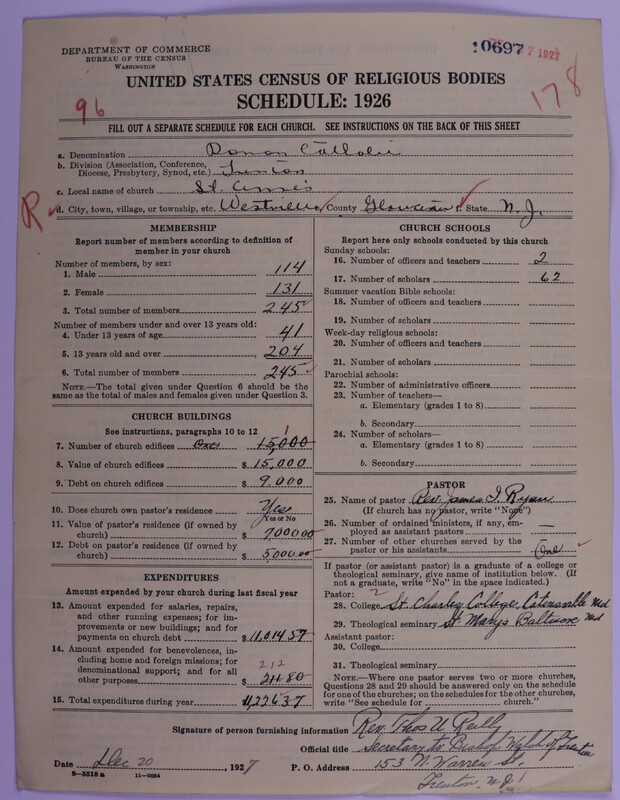 DEPARTMENT OF COMMERCE
BUREAU OF THE CENSUS
WASHINGTON
10697
7 1927
UNITED STATES CENSUS OF RELIGIOUS BODIES
SCHEDULE: 1926
96
178
FILL OUT A SEPARATE SCHEDULE FOR EACH CHURCH. SEE INSTRUCTIONS ON THE BACK OF THIS SHEET
a. Denomination Roman Catholic
b. Division (Association, Conference, Diocese, Presbytery, Synod, etc.) Trenton
c. Local name of church St. Anne's
R
d. City, town, village, or township, etc. Westville County Gloucester f. State N. J.
MEMBERSHIP
Report number of members according to definition of
member in your church
Number of members, by sex:
1. Male 114
2. Female 131
3. Total number of members 245
Number of members under and over 13 years old:
4. Under 13 years of age 41
5. 13 years old and over 204
6. Total number of members 245
NOTE.—The total given under Question 6 should be the
same as the total of males and females given under Question 3.
CHURCH BUILDINGS
See instructions, paragraphs 10 to 12
7. Number of church edifices One 15,000 1
8. Value of church edifices $ 15,000
9. Debt on church edifices $ 9,000
10. Does church own pastor's residence? Yes
Yes or No
11. Value of pastor's residence (if owned by
church) $ 7000.00
12. Debt on pastor's residence (if owned by
church) $ 5000.00
EXPENDITURES
Amount expended by your church during last fiscal year
13. Amount expended for salaries, repairs,
and other running expenses; for im-
provements or new buildings; and for
payments on church debt $ 11,014.57
14. Amount expended for benevolences, in-
cluding home and foreign missions; for
denominational support; and for all
other purposes 212
$ 211.80
15. Total expenditures during year $ 11,226.37
CHURCH SCHOOLS
Report here only schools conducted by this church
Sunday schools:
16. Number of officers and teachers 2
17. Number of scholars 62
Summer vacation Bible schools:
18. Number of officers and teachers
19. Number of scholars
Week-day religious schools:
20. Number of officers and teachers
21. Number of scholars
Parochial schools:
22. Number of administrative officers
23. Number of teachers—
a. Elementary (grades 1 to 8)
b. Secondary
24. Number of scholars—
a. Elementary (grades 1 to 8)
b. Secondary
PASTOR
25. Name of pastor Rev. James I. Ryan
(If church has no pastor, write "None")
26. Number of ordained ministers, if any, em-
ployed as assistant pastors —
27. Number of other churches served by the
pastor or his assistants One
If pastor (or assistant pastor) is a graduate of a college or
theological seminary, give name of institution below. (If
not a graduate, write "No" in the space indicated.)
Pastor: 2
28. College St. Charles College, Catonsville Md
29. Theological seminary St. Mary's Baltimore Md
Assistant pastor:
30. College
31. Theological seminary
NOTE.—Where one pastor serves two or more churches,
Questions 28 and 29 should be answered only on the schedule
for one of the churches; on the schedules for the other churches,
write "See schedule for church."
Signature of person furnishing information Rev. Thos U Reilly
Official title Secretary to Bishop Walsh of Trenton
Date Dec 20 1927 P. O. Address 153 N. Warren St.
8—5518 a 11—9084
Trenton, N.J.